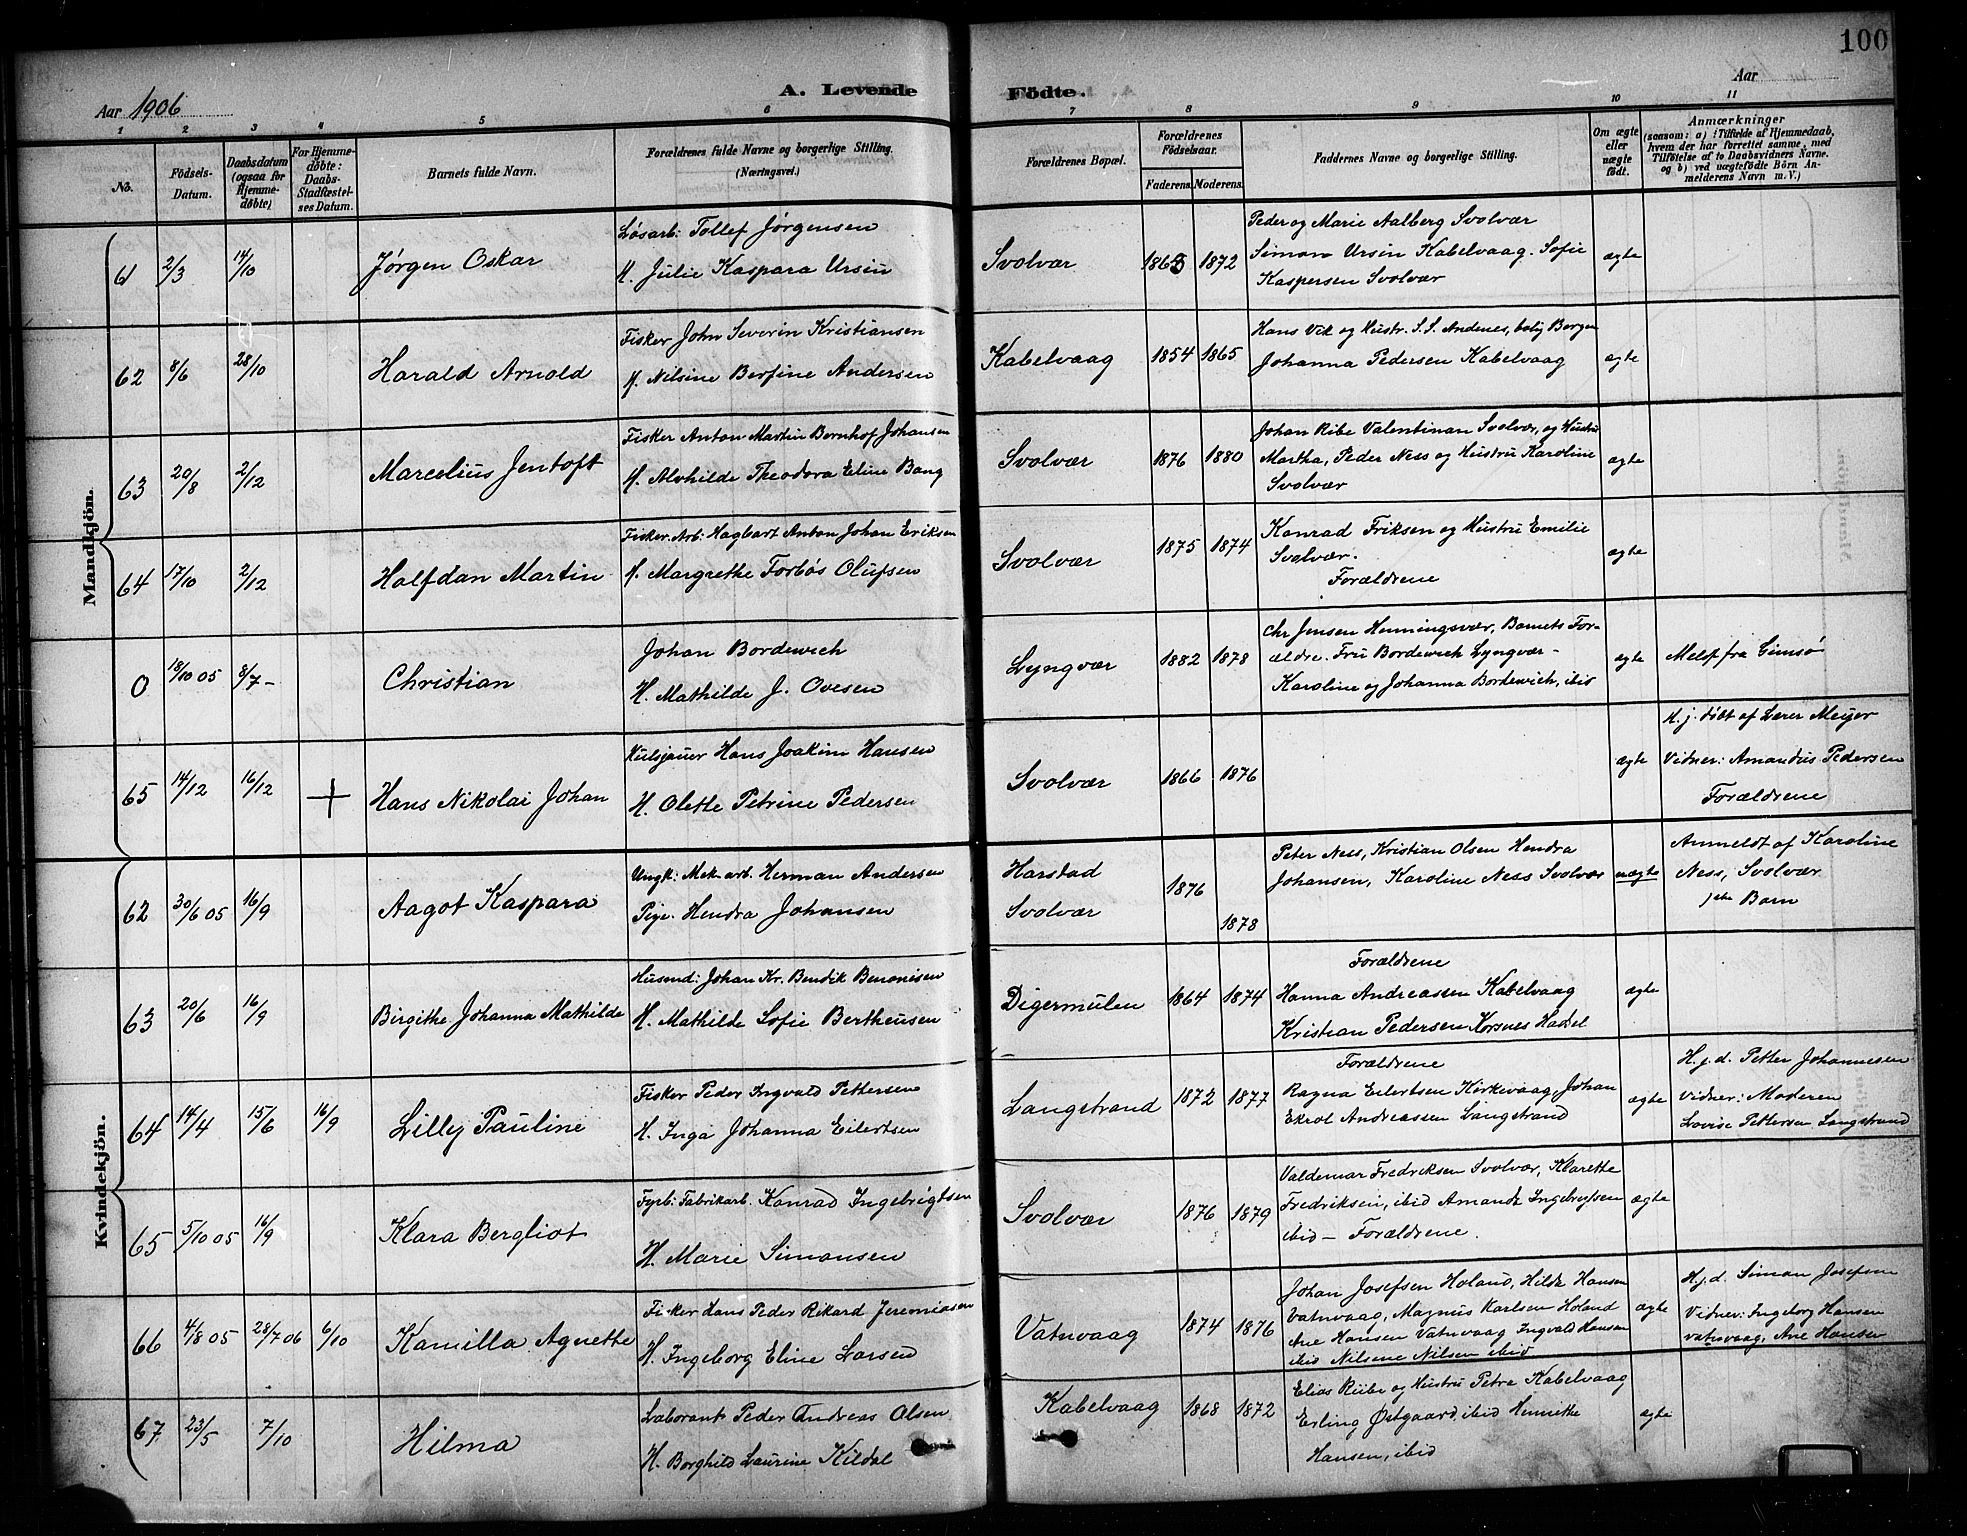 100
Aar 1906
A. Levende Fødte.
Aar
1 2 3 4 5 6 7 8 9 10 11
No.
Fødsels-
Datum.
Daabsdatum
(ogsaa for
Hjemme-
døbte)
For Hjemme-
døbte:
Daabs-
Stadfæstel-
ses Datum.
Barnets fulde Navn.
Forældrenes fulde Navne og borgerlige Stilling.
(Næringsvei.)
Forældrenes Bopæl.
Forældrenes
Fødselsaar.
Faderens. Moderens.
Faddernes Navne og borgerlige Stilling.
Om ægte
eller
uægte
født.
Anmærkninger
(saasom: a) i Tilfælde af Hjemmedaab,
hvem der har forrettet samme, med
Tilføielse af to Daabsvidners Navne.
og b) ved uægtefødte Børn An-
melderens Navn m. V.)
Mandkjön.
61 2/3 14/10 Jørgen Oskar
Løsarb: Tollef Jørgensen
H. Julie Kaspara Ursin
Svolvær 1863 1872
Peder og Marie Aalberg Svolvær
Simon Ursin Kabelvaag. Sofie
Kaspersen Svolvær
ægte
62 8/6 28/10 Harald Arnold
Fisker John Severin Kristiansen
H. Nilsine Berfine Andersen
Kabelvaag 1854 1865
Hans Vik og Hustr. S. S. Andenes, bolig Borgen
Johanna Pedersen Kabelvaag
ægte
63 20/8 2/12 Marcelius Jentoft
Fisker Anton Martin Bernhof Johansen
H. Alvhilde Theodora Eline Bang
Svolvær 1876 1880
Johan Ribe Valentinan Svolvær, og Hustru
Martha, Peder Ness og Hustru Karoline
Svolvær
ægte
64 17/10 2/12 Halfdan Martin
Fisker. Arb: Hagbart Anton Johan Eriksen
H. Margrethe Torbøs Olufsen
Svolvær 1875 1874
Konrad Friksen og Hustru Emilie
Svolvær.
Forældrene
ægte
0 18/10 05 8/7 – Christian
Johan Bordewich
H. Mathilde J. Ovesen
Lyngvær 1882 1878
Chr Jensen Henningsvær, Barnets For-
ældre. Fru Bordewich Lyngvær –
Karoline og Johanna Bordewich, ibid
ægte
Melst fra Gimsø
65 14/12 16/12 + Hans Nikolai Johan
Kulsjauer Hans Joakim Hansen
H. Olette Petrine Pedersen
Svolvær 1866 1876
ægte
H. j. døbt af Lærer Meyer
Vidner: Amandus Pedersen
Forældrene
Kvindekjön.
62 30/6 05 16/9 Aagot Kaspara
Ungk: Mek. arb. Herman Andersen
Pige. Hendra Johansen
Harstad
Svolvær
1876
1878
Peter Ness, Kristian Olsen Hendra
Johansen, Karoline Ness Svolvær
uægte
Anmeldt af Karoline
Ness, Svolvær
1ste Barn
63 20/6 16/9 Birgithe Johanna Mathilde
Husmd: Johan Kr. Bendik Benonisen
H. Mathilde Sofie Bertheusen
Digermulen 1864 1874
Forældrene
Hanna Andreassen Kabelvaag
Kristian Pedersen Korsnes Hadsel
ægte
64 14/4 15/6 16/9 Lilly Pauline
Fisker Peder Ingvald Pettersen
H. Inga Johanna Eilertsen
Langstrand 1872 1877
Forældrene
Ragna Eilertsen Kirkevaag, Johan
Ekrol Andreassen Langstrand
ægte
H. j. d. Petter Johannesen
vidner: Moderen
Lovise Pettersen Langstrand
65 5/10 05 16/9 Klara Bergliot
Fyrb: Fabrikarb. Konrad Ingebrigtsen
H. Marie Simonsen
Svolvær 1876 1879
Valdemar Fredriksen Svolvær, Klarette
Fredriksen, ibid Amanda Ingebrigtsen
ibid – Forældrene.
ægte
66 4/8 05 28/7 06 6/10 Kamilla Agnethe
Fisker Hans Peder Rikard Jeremiasen
H. Ingeborg Eline Larsen
Vatnvaag 1874 1876
Johan Josefsen Holand, Hilda Hansen
Vatnvaag, Magnus Karlsen Holand
Ane Hansen Vatnvaag Ingvald Hansen
ibid Nilsine Nilsen ibid
ægte
H. j. d. Simon Josefsen
Vidner: Ingeborg Hansen
vatnvaag, Ane Hansen
67 23/5 7/10 Hilma
Laborant Peder Andreas Olsen
H. Borghild Laurine Kildal
Kabelvaag 1868 1872
Elias Riibe og Hustru Petra Kabelvaag
Erling Østgaard, ibid Henrikke
Hansen, ibid
ægte